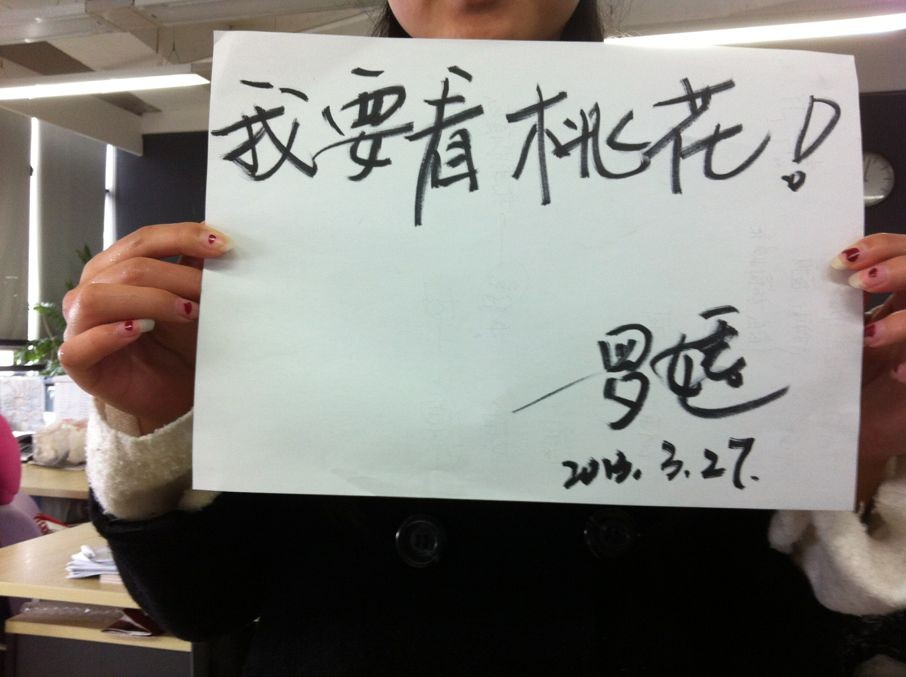 我要看桃花!
2013.3.27.